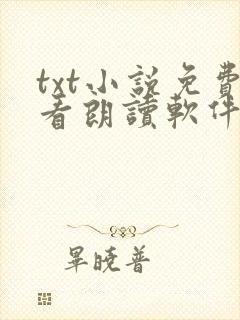 txt小說免費
看朗讀軟件
畢曉普